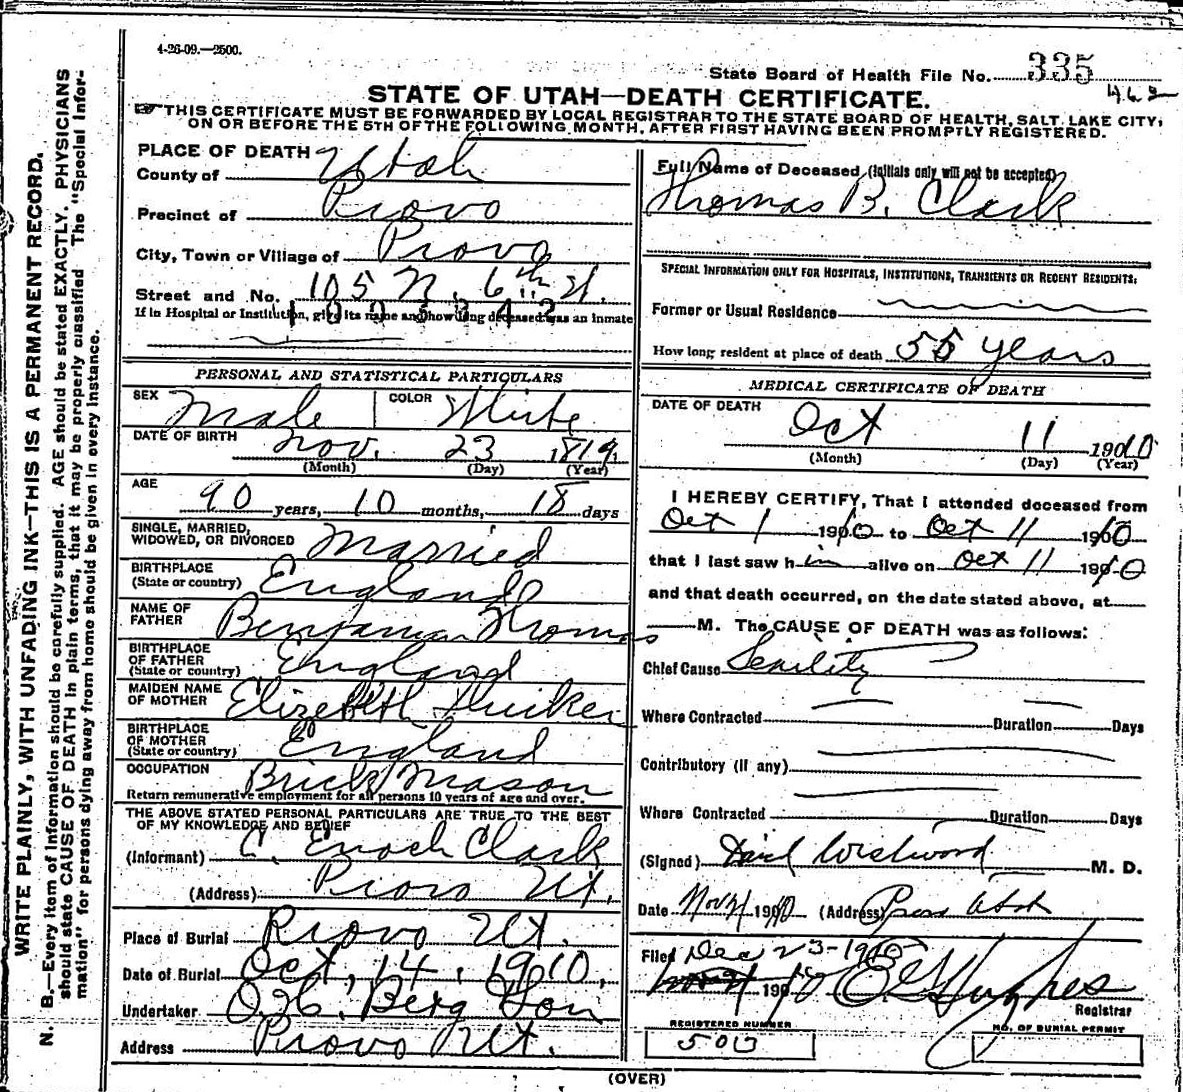 4-26-09.—2500.
State Board of Health File No. 335
STATE OF UTAH—DEATH CERTIFICATE.
THIS CERTIFICATE MUST BE FORWARDED BY LOCAL REGISTRAR TO THE STATE BOARD OF HEALTH, SALT LAKE CITY,
ON OR BEFORE THE 5TH OF THE FOLLOWING MONTH, AFTER FIRST HAVING BEEN PROMPTLY REGISTERED.
WRITE PLAINLY, WITH UNFADING INK—THIS IS A PERMANENT RECORD.
N. B.—Every item of information should be carefully supplied. AGE should be stated EXACTLY. PHYSICIANS
should state CAUSE OF DEATH in plain terms, that it may be properly classified. The "Special Infor-
mation" for persons dying away from home should be given in every instance.
PLACE OF DEATH
County of Utah
Precinct of Provo
City, Town or Village of Provo
Street and No. 105 N. 6th St.
If in Hospital or Institution, give its name and how long deceased was an inmate
PERSONAL AND STATISTICAL PARTICULARS
SEX Male COLOR White
DATE OF BIRTH Nov. 23 1819
(Month) (Day) (Year)
AGE
90 years, 10 months, 18 days
SINGLE, MARRIED,
WIDOWED, OR DIVORCED Married
BIRTHPLACE
(State or country) England
NAME OF
FATHER Benjamin Thomas
BIRTHPLACE
OF FATHER
(State or country) England
MAIDEN NAME
OF MOTHER Elizabeth
BIRTHPLACE
OF MOTHER
(State or country) England
OCCUPATION Brick Mason
Return remunerative employment for all persons 10 years of age and over.
THE ABOVE STATED PERSONAL PARTICULARS ARE TRUE TO THE BEST
OF MY KNOWLEDGE AND BELIEF
(Informant) Enoch Clark
(Address) Provo Ut.
Place of Burial Provo Ut.
Date of Burial Oct, 14, 1910,
Undertaker Berg Son
Address Provo Ut.
Full Name of Deceased (Initials only will not be accepted)
Thomas B. Clark
SPECIAL INFORMATION ONLY FOR HOSPITALS, INSTITUTIONS, TRANSIENTS OR RECENT RESIDENTS.
Former or Usual Residence
How long resident at place of death years
MEDICAL CERTIFICATE OF DEATH
DATE OF DEATH
Oct 11 1910
(Month) (Day) (Year)
I HEREBY CERTIFY, That I attended deceased from
Oct 1 1910 to Oct 11 1910
that I last saw him alive on Oct 11 1910
and that death occurred, on the date stated above, at
M. The CAUSE OF DEATH was as follows:
Chief Cause Senility
Where Contracted Duration Days
Contributory (if any)
Where Contracted Duration Days
(Signed) Westwood M. D.
Date Nov 1910 (Address) Provo Utah
Filed Dec 23-1910
Hughes
Registrar
REGISTERED NUMBER NO. OF BURIAL PERMIT
500
(OVER)